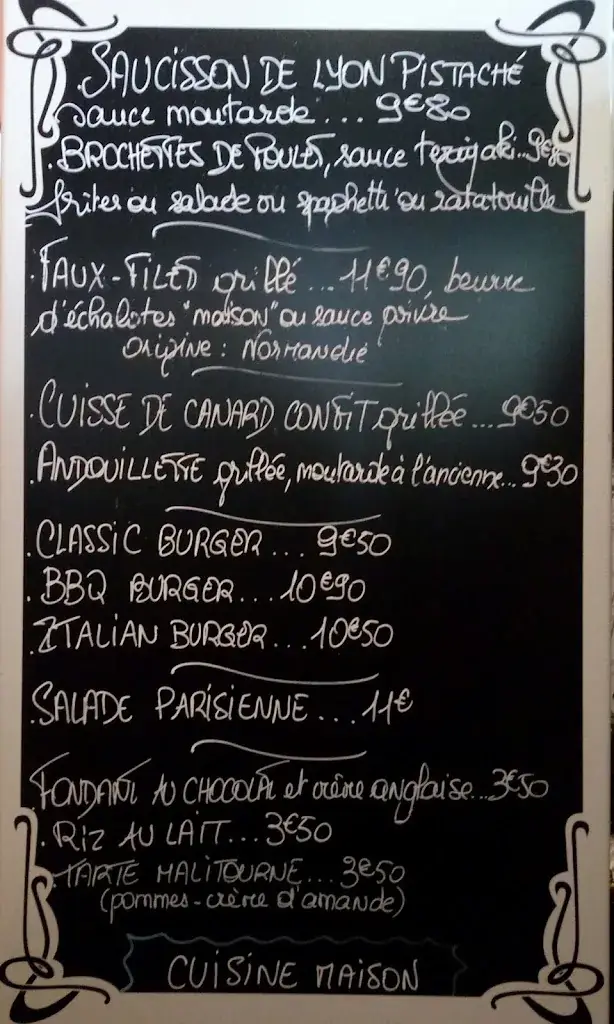 . SAUCISSON DE LYON PISTACHÉ
sauce moutarde... 9€80
. BROCHETTES DE POULET, sauce teriyaki..9€80
frites ou salade ou spaghetti ou ratatouille
. FAUX-FILET grillé ... 11€90, beurre
d'échalotes "maison" ou sauce poivre
Origine : NORMANDIE
. CUISSE DE CANARD CONFIT grillée...9€50
. ANDOUILLETTE grillée, moutarde à l'ancienne... 9€30
. CLASSIC BURGER... 9€50
. BBQ BURGER... 10€90
. ITALIAN BURGER...10€50
. SALADE PARISIENNE... 11€
. FONDANT AU CHOCOLAT et crème anglaise...3€50
. RIZ AU LAIT...3€50
. TARTE MALITOURNE...3€50
(pommes-crème d'amande)
CUISINE MAISON